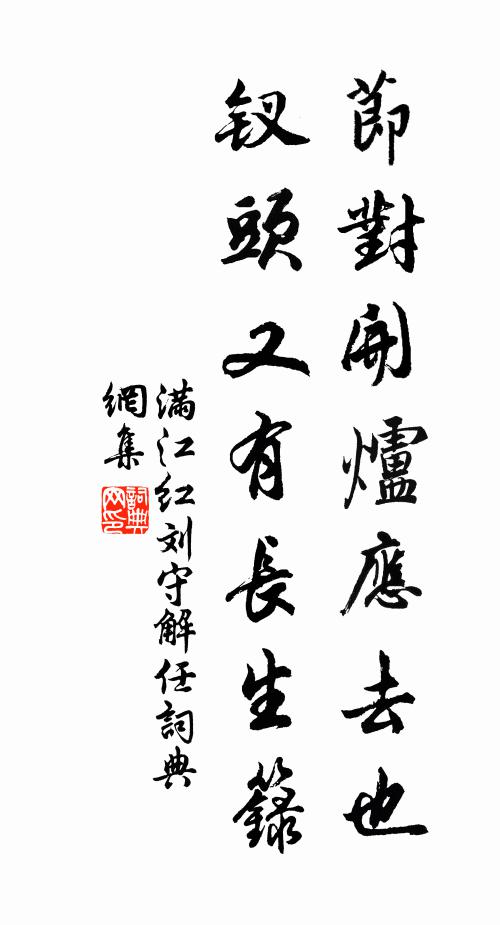 節對開爐應去也
釵頭又有長生籙
满江红刘守解任詞典
網集
詞典
网印